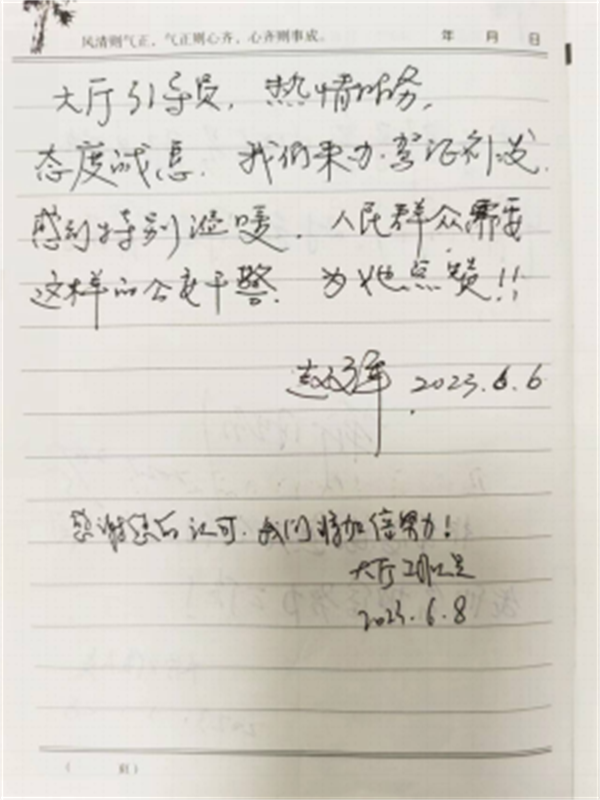 风清则气正，气正则心齐，心齐则事成。 年 月 日
大厅引导员，热情服务，
态度诚恳。我们来办驾证补发，
感到特别温暖，人民群众需要
这样的公安干警。为她点赞！！
赵 军 2023.6.6
感谢您的认可，我们将加倍努力！
大厅工作人员
2023.6.8
（ 页）